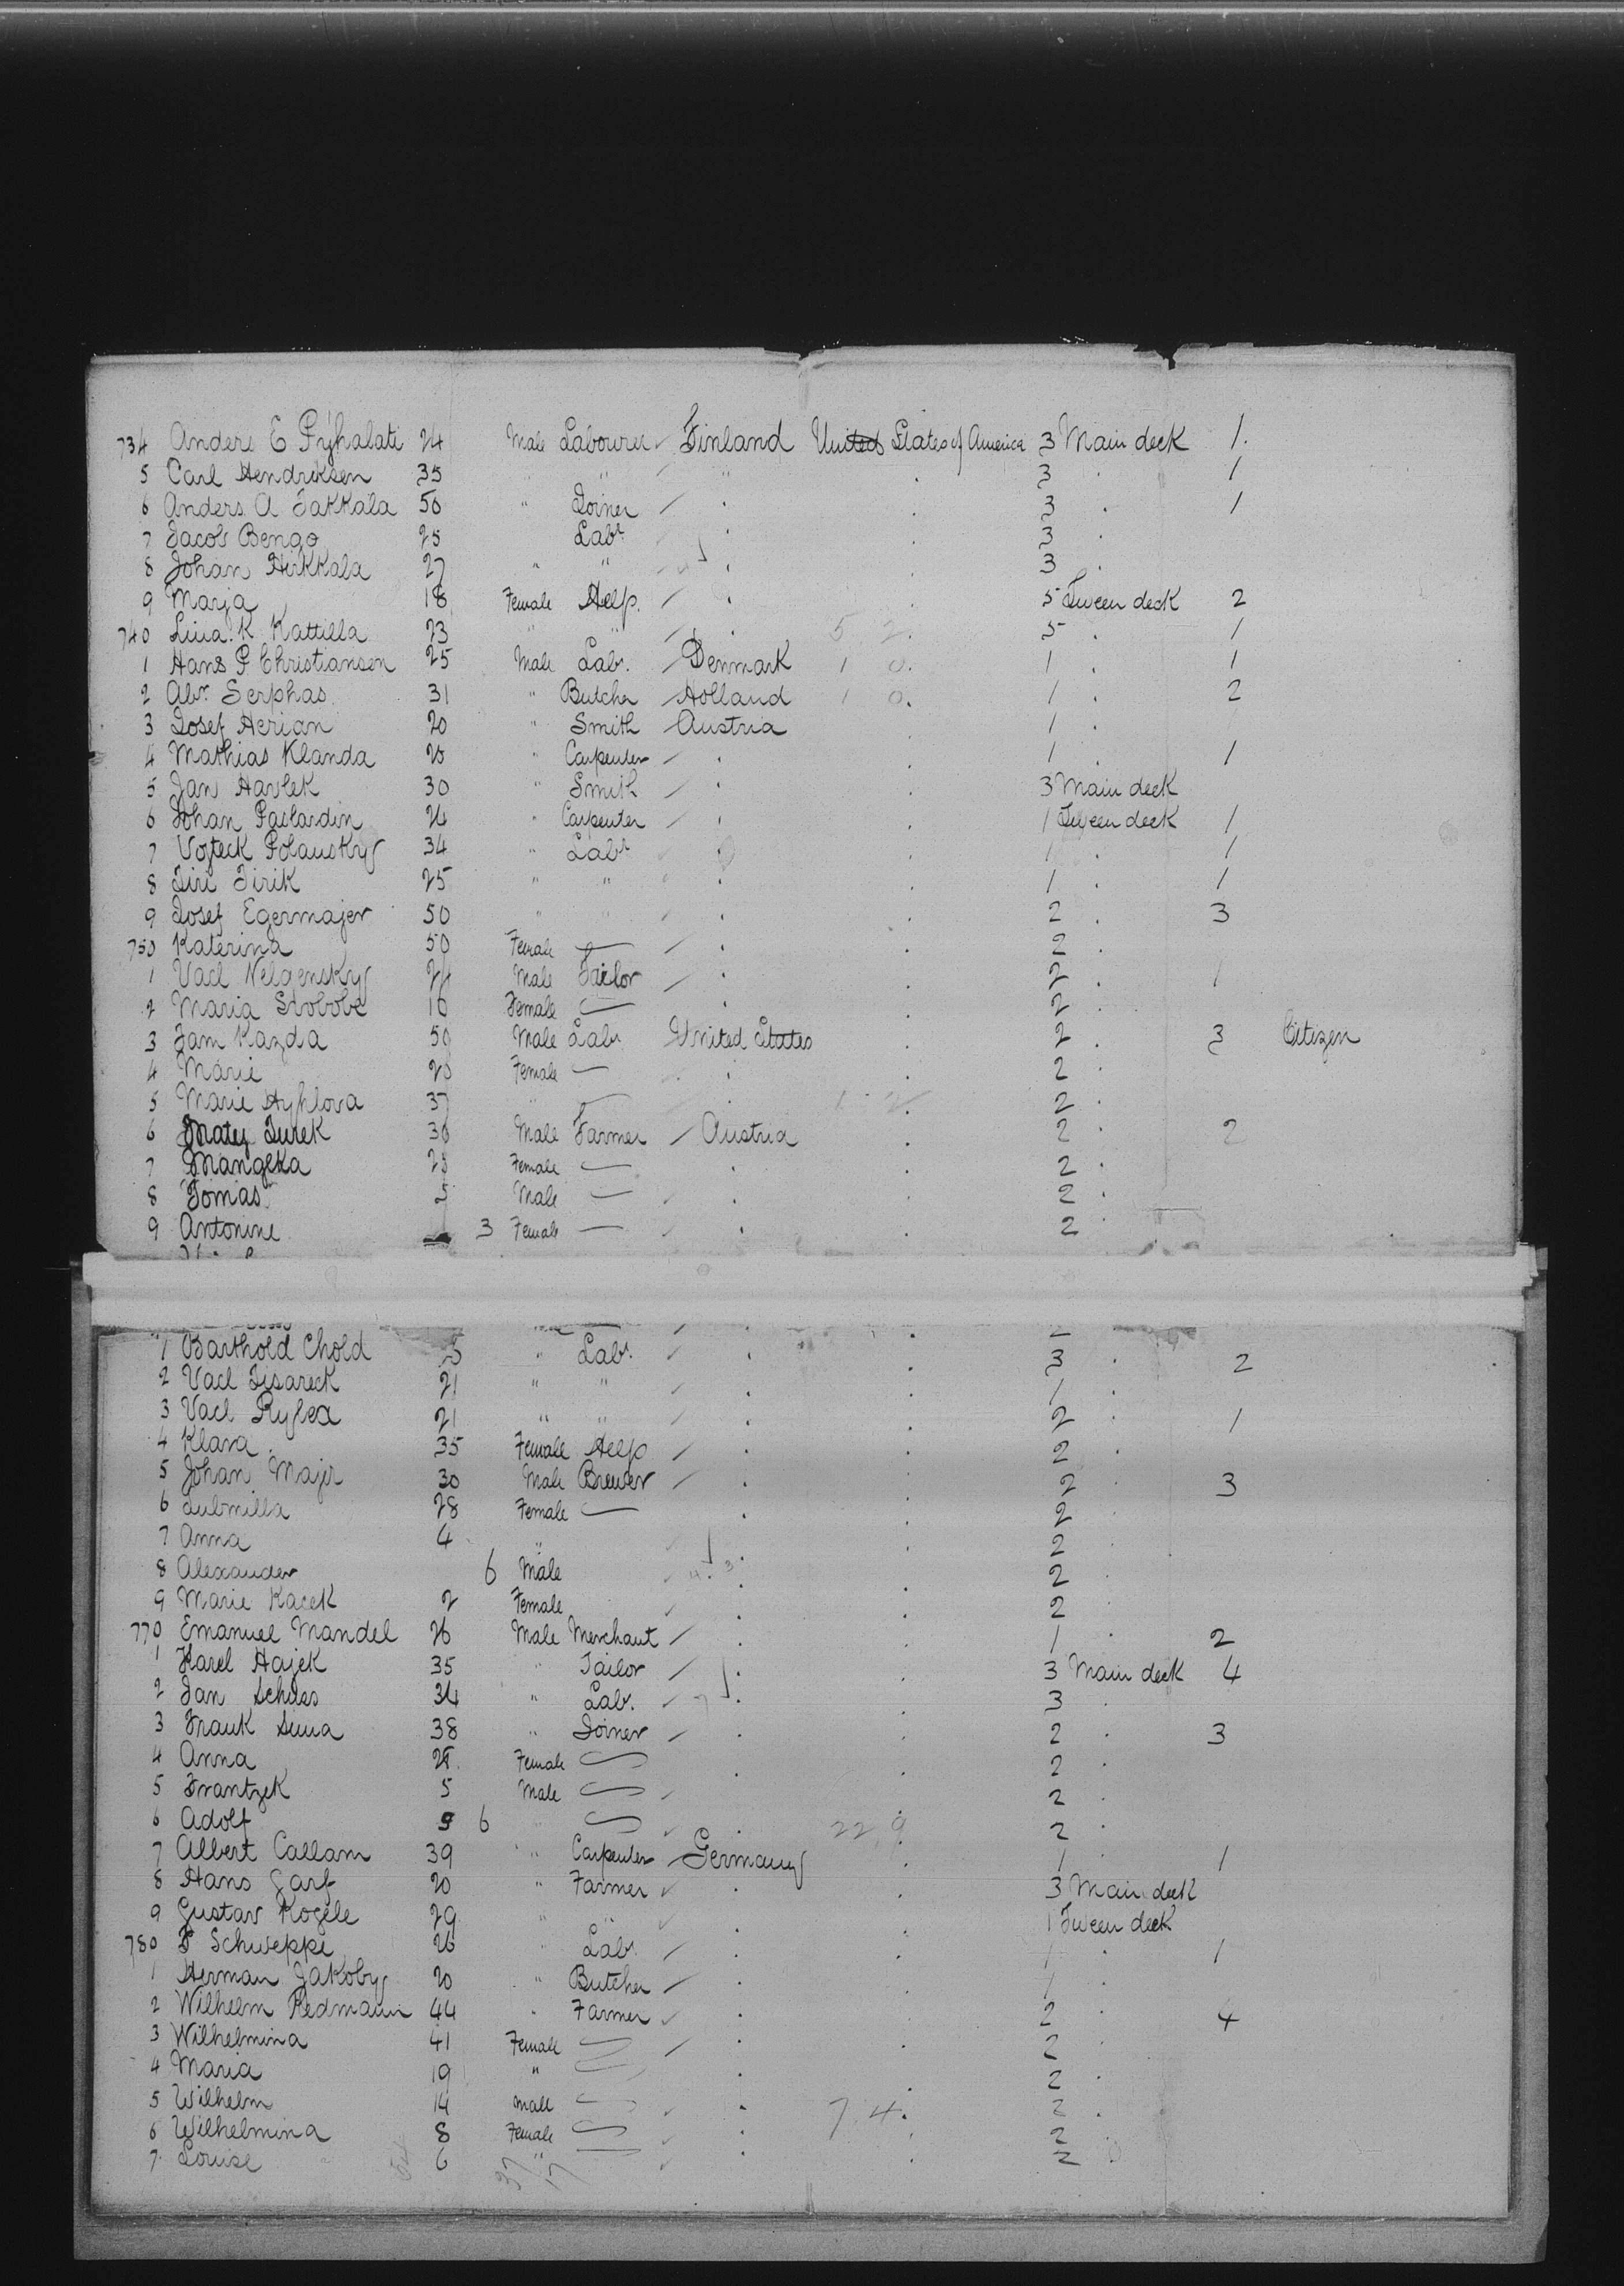 734 Anders E Pyhalati 24 Male Labourer Finland United States of America 3 Main deck 1.
5 Carl Hendriksen 35 " " " 3 1
6 Anders A Jakkala 50 " Joiner 3 1
7 Jacob Bengo 25 Labr 3
8 Johan Hirkkala 27 " " 3
9 Marja 18 Female Help. 5 Tween deck 2
740 Lina K Kattilla 23 " " 5 2 5 1
1 Hans P Christiansen 25 Male Labr. Denmark 1 0 1 1
2 Abr. Serphas 31 " Butcher Holland 1 0 1 2
3 Josef Herian 20 " Smith Austria 1
4 Mathias Klanda 20 " Carpenter 1 1
5 Jan Havlek 30 " Smith 3 Main deck
6 Johan Pailardin 24 " Carpenter 1 Tween deck 1
7 Vojteck Polansky 34 " Labr 1 1
8 Jiri Jirik 25 " " 1 1
9 Josef Egermajer 50 " " 2 3
750 Katerina 50 Female — 2
1 Vacl Nelgensky 24 Male Tailor 2 1
2 Maria Svobobe 16 Female — 2
3 Jam Kazda 50 Male Labr United States 2 3 Citizen
4 Marie 20 Female — 2
5 Marie Hyhlova 37 " — 1 2 2
6 Matej Turek 30 Male Farmer Austria 2 2
7 Mangeka 25 Female — 2
8 Tomas 5 Male — 2
9 Antonine 3 Female — 2
1 Barthold Chold " Labr. 3 2
2 Vacl Jisareck 21 " " 1
3 Vacl Ryfea 21 " " 2 1
4 Klara 35 Female Help 2
5 Johan Majr 30 Male Brewer 2 3
6 Lubmilla 28 Female — 2
7 Anna 4 " 2
8 Alexander 6 Male 4 3 2
9 Marie Kacek 2 Female 2
770 Emanuel Mandel 26 Male Merchant 1 2
1 Karel Hajek 35 " Tailor 3 Main deck 4
2 Jan Schuss 34 " Labr. 3
3 Frank Suma 38 " Joiner 2 3
4 Anna 28 Female 2
5 Frantzek 5 Male 2
6 Adolf 6 " 22 9 2
7 Albert Callam 39 " Carpenter Germany 1 1
8 Hans Garf 20 " Farmer 3 Main deck
9 Gustav Kogele 29 " " 1 Tween deck
780 F Schweppe 26 " Labr 1 1
1 Herman Jakoby 20 " Butcher 1
2 Wilhelm Redmann 44 " Farmer 2 4
3 Wilhelmina 41 Female 2
4 Maria 19 " 2
5 Wilhelm 14 Male 7 4 2
6 Wilhelmina 8 Female 2
7 Louise 6 " 2
37 17